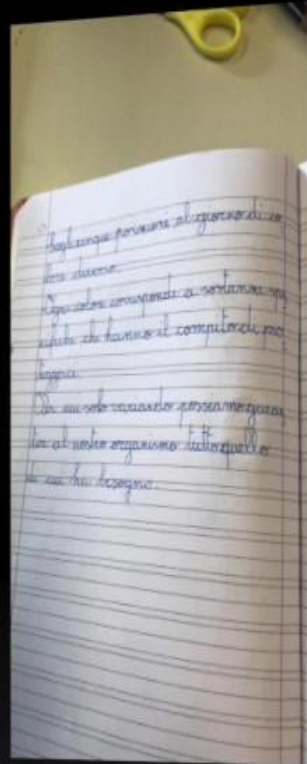 Scegli cinque porzioni al giorno di co
lore diverso.
Ogni colore corrisponde a sostanze spe
cifiche che hanno il compito di pro
teggerci.
Per cui solo variando possiamo garan
tire al nostro organismo tutto quello
di cui ha bisogno.